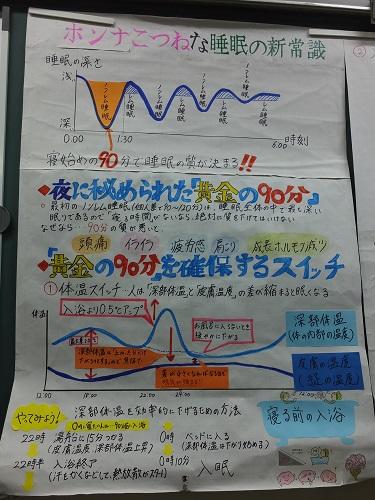 ホンナこつねな睡眠の新常識
②
睡眠の深さ
浅
深
ノンレム睡眠
レム睡眠
ノンレム睡眠
レム睡眠
ノンレム睡眠
レム睡眠
ノンレム睡眠
レム睡眠
0:00
1:30
6:00
時刻
寝始めの90分で睡眠の質が決まる!!
◆夜に秘められた「黄金の90分」
最初のノンレム睡眠(個人差70〜120分)は睡眠全体の中で最も深い
眠りであるので“寝る時間がないなら、絶対に質を下げてはいけない
なぜなら…90分が悪いと…
頭痛 イライラ 疲労感 肩こり 成長ホルモン減少
◆「黄金の90分」を確保するスイッチ
①体温スイッチ…人は「深部体温」と「皮膚温度」の差が縮まると眠くなる
体温
入浴より0.5℃アップ
お風呂に入らないと
緩やかに下がる
深部体温
(体の内部の温度)
皮膚の温度
(手足の温度)
12:00
18:00
22:00
24:00
やってみよう!
深部体温を効率的に下げるための方法
寝る前の入浴
22時 湯船に15分つかる
(皮膚温度、深部体温上昇)
22時半 入浴終了
(汗もかくなどして、熱放散がスタート)
0時 ベッドに入る
(深部体温は下がり始める)
0時10分 入眠